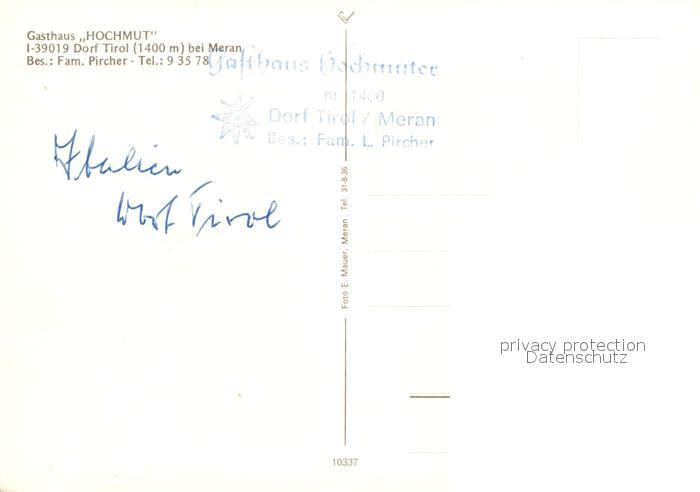 Gasthaus „HOCHMUT“
I-39019 Dorf Tirol (1400 m) bei Meran
Bes.: Fam. Pircher - Tel.: 9 35 78
Gasthaus Hochmuter
m 1400
Dorf Tirol / Meran
Bes.: Fam. L. Pircher
Italien
Dorf Tirol
Foto E. Mauer, Meran, Tel. 31-8-36
privacy protection
Datenschutz
10337